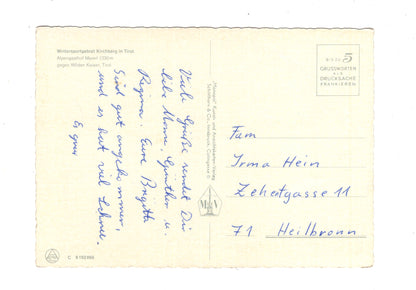 Wintersportgebiet Kirchberg in Tirol
Alpengasthof Maierl 1200 m
gegen Wilden Kaiser, Tirol
Viele Grüße sendet Dir
liebe Mome, Günther u.
Regina. Eure Brigitte
Sind gut angekommen,
und es hat viel Schnee.
C
BIS ZU 5
GRUSSWORTEN
ALS
DRUCKSACHE
FRANKIEREN
Fam
Irma Hein
Zehentgasse 11
71 Heilbronn